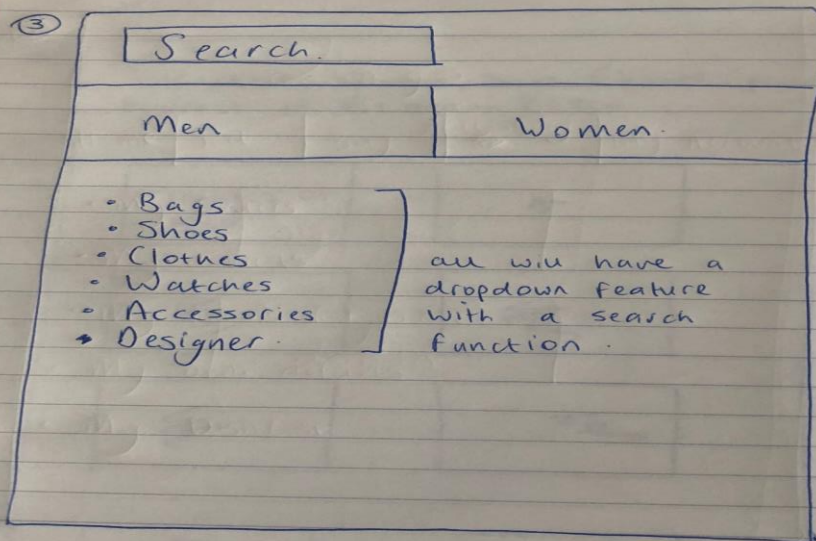 3
Search.
Men
Women.
• Bags
• Shoes
• Clothes
• Watches
• Accessories
• Designer.
all will have a
dropdown feature
with a search
function.